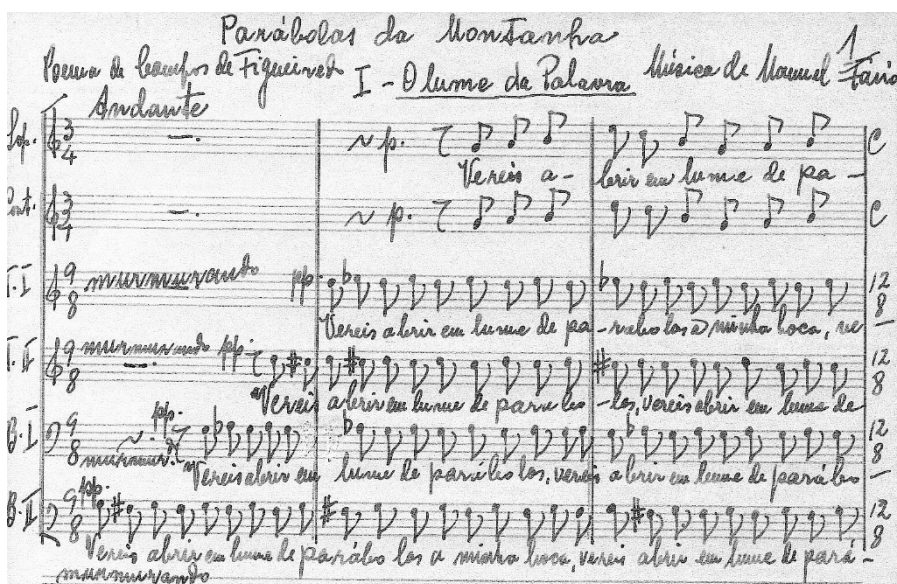 Parábolas da Montanha
1
Poema de Campos de Figueiredo
I - O lume da Palavra
Música de Manuel Faria
Andante
Sop. 3 4 p. C
Vereis a- brir em lume de pa-
Cont. 3 4 p. C
T. I 9 8 murmurando pp. 12 8
Vereis abrir em lume de pa-rabolas a minha boca, ve-
T. II 9 8 murmurando pp. 12 8
Vereis abrir em lume de parabo-las, vereis abrir em lume de
B. I 9 8 pp. 12 8
Vereis abrir em lume de parábolas, vereis abrir em lume de parábo-
B. II 9 8 pp. 12 8
Vereis abrir em lume de parábolas a minha boca, vereis abrir em lume de pará-
murmurando